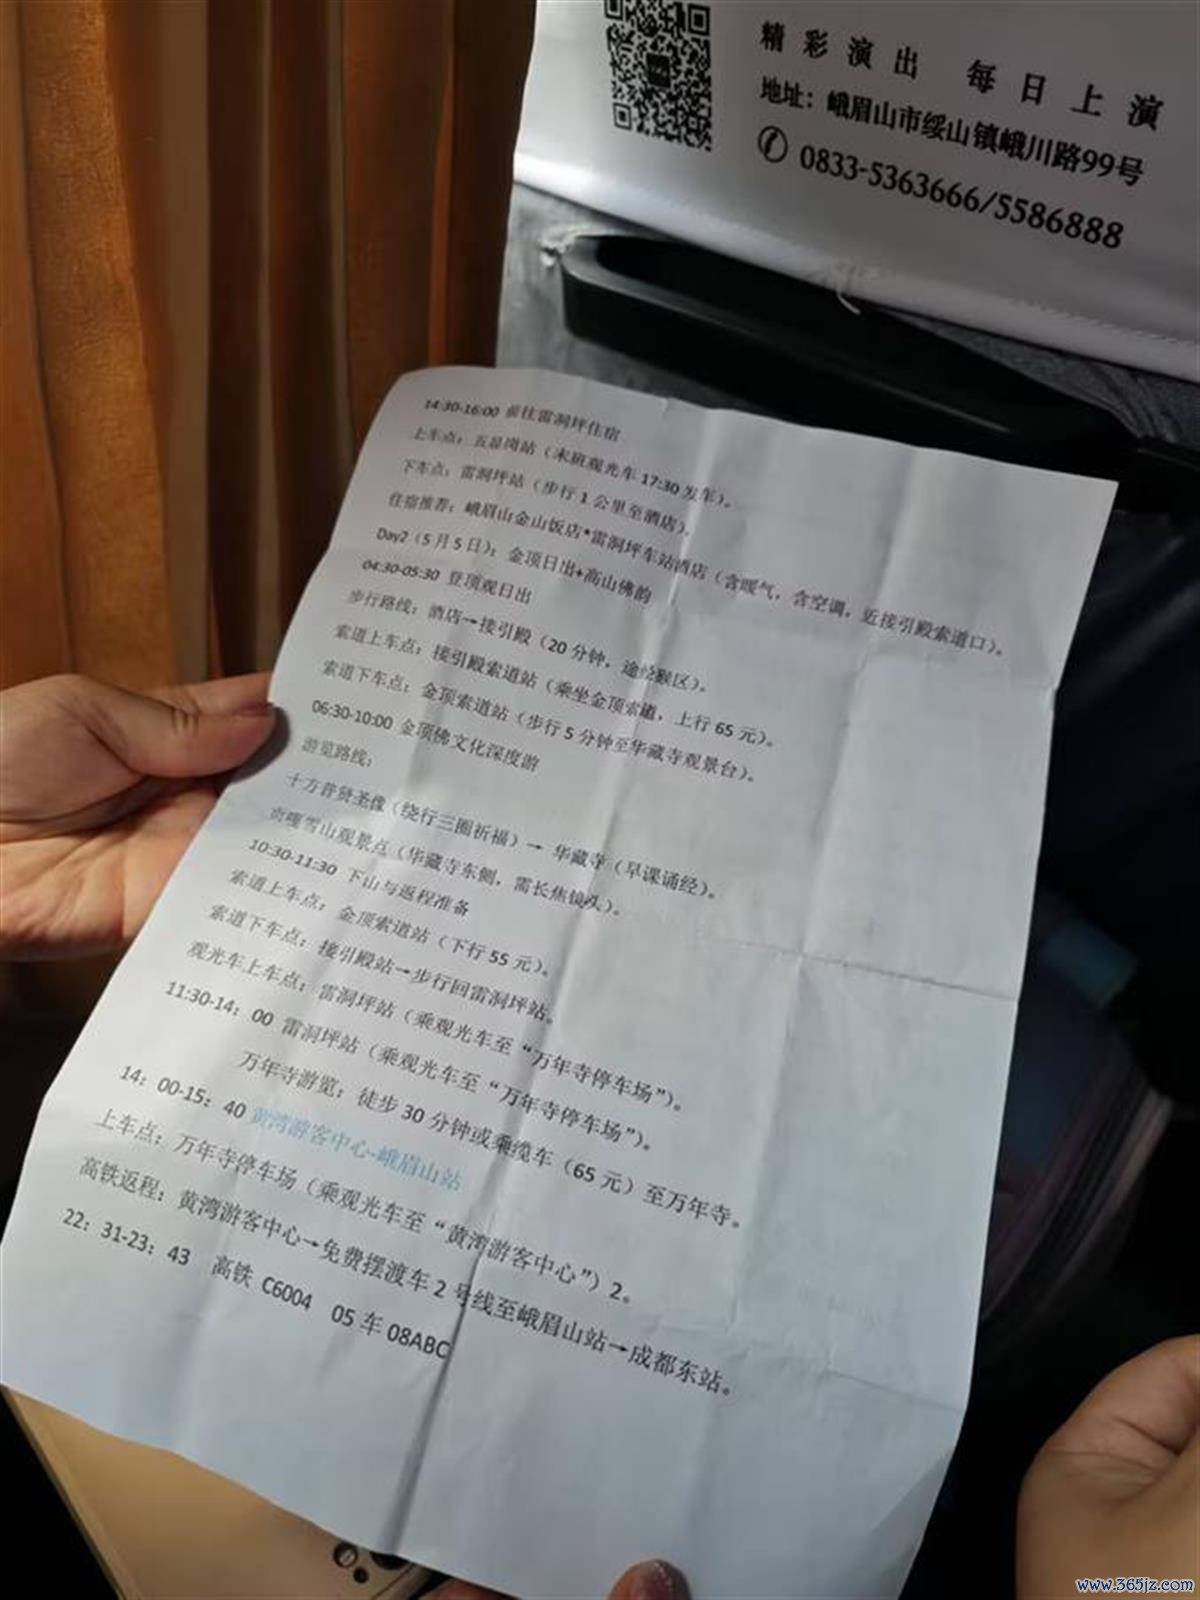 精彩演出 每日上演
地址：峨眉山市绥山镇峨川路99号
0833-5363666/5586888
14:30-16:00 前往雷洞坪住宿
上车点：五显岗站（末班观光车 17:30 发车）。
下车点：雷洞坪站（步行 1 公里至酒店）。
住宿推荐：峨眉山金山饭店*雷洞坪车站酒店（含暖气，含空调，近接引殿索道口）。
Day2（5 月 5 日）：金顶日出+高山佛韵
04:30-05:30 登顶观日出
步行路线：酒店→接引殿（20 分钟，途经猴区）。
索道上车点：接引殿索道站（乘坐金顶索道，上行 65 元）。
索道下车点：金顶索道站（步行 5 分钟至华藏寺观景台）。
06:30-10:00 金顶佛文化深度游
游览路线：
十方普贤圣像（绕行三圈祈福）→ 华藏寺（早课诵经）。
贡嘎雪山观景点（华藏寺东侧，需长焦镜头）。
10:30-11:30 下山与返程准备
索道上车点：金顶索道站（下行 55 元）。
索道下车点：接引殿站→步行回雷洞坪站。
观光车上车点：雷洞坪站（乘观光车至“万年寺停车场”）。
11:30-14：00 雷洞坪站（乘观光车至“万年寺停车场”）。
万年寺游览：徒步 30 分钟或乘缆车（65 元）至万年寺。
14：00-15：40 黄湾游客中心-峨眉山站
上车点：万年寺停车场（乘观光车至“黄湾游客中心”）2。
高铁返程：黄湾游客中心→免费摆渡车 2 号线至峨眉山站→成都东站。
22：31-23：43 高铁 C6004 05 车 08ABC
www.365jz.com